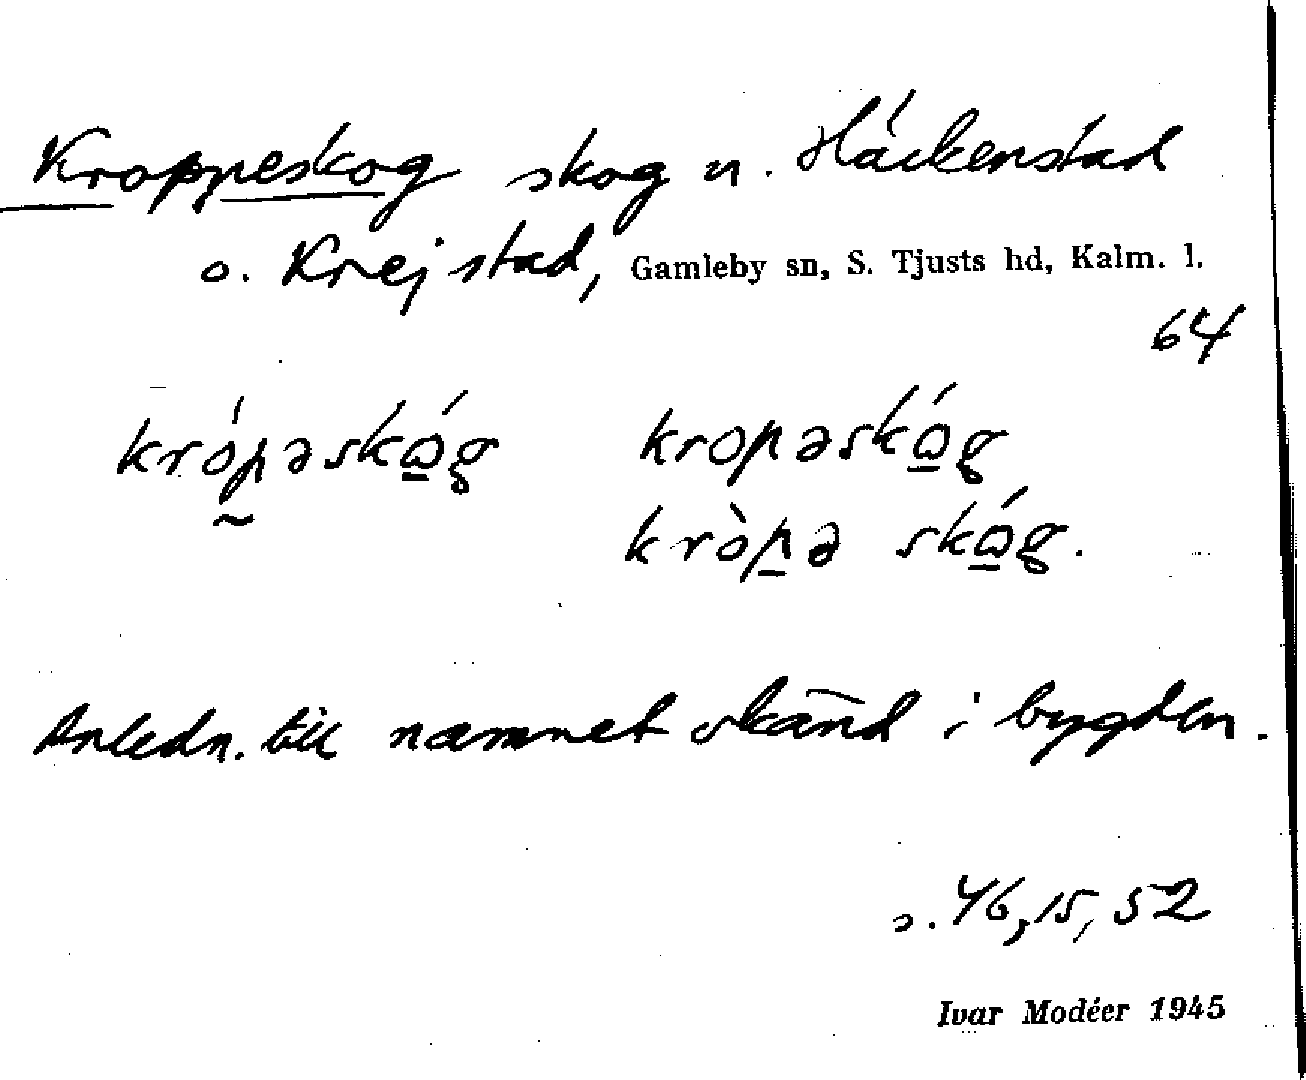 Kroppeskog skog u. Häckenstad
o. Krejstad, Gamleby sn, S. Tjusts hd, Kalm. l.
64
krópəskɷ́g kropəskɷ́g
kròpə skɷ́g.
Anledn. till namnet okänd i bygden.
s. 46, 15, 52
Ivar Modéer 1945